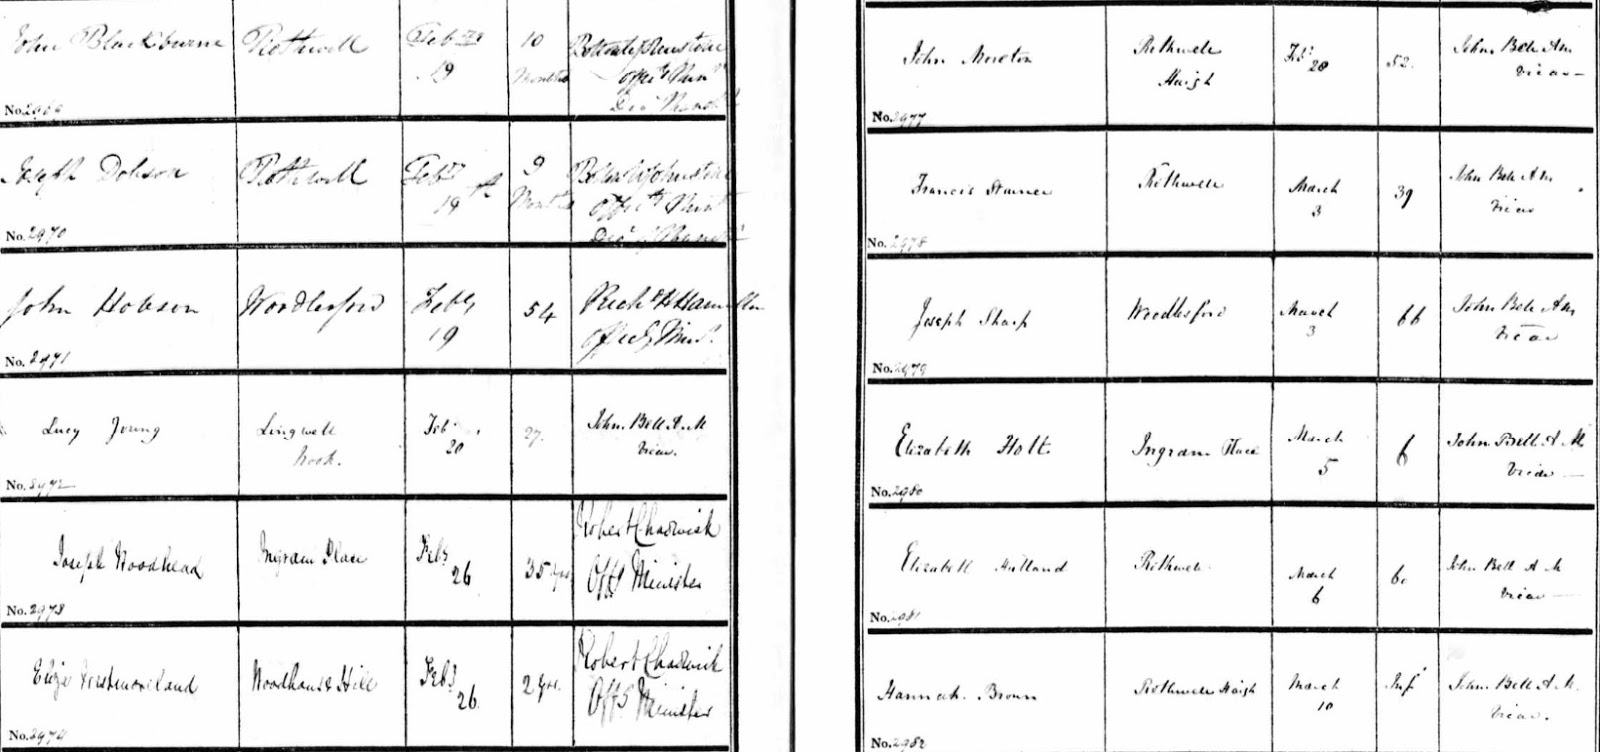 John Blackburne Rothwell Feby 19 10 Months
No. 2969
Joseph Dobson Rothwell Feby 19th 9 Months
No. 2970
John Hobson Woodlesford Feby 19 54 Offictg Minr.
No. 2971
Lucy Young Lingwell Nook. Feb. 20 27. John Bell A.M Vicar.
No. 2972
Joseph Woodhead Ingram Place Feby 26 35 yrs Robert Chadwick Offg Minister
No. 2973
Eliza Westmoreland Woodhouse Hill Feby 26 2 yrs. Robert Chadwick Offg Minister
No. 2974
John Moreton Rothwell Haigh Feb. 28 52. John Bell A.M Vicar
No. 2977
Francis Rothwell March 3 39 John Bell A.M. Vicar
No. 2978
Joseph Sharp Woodlesford March 3 66 John Bell A.M Vicar
No. 2979
Elizabeth Holt Ingram Place March 5 6 John Bell A.M Vicar
No. 2980
Elizabeth Rothwell March 6 60 John Bell A.M Vicar
No. 2981
Hannah Brown Rothwell Haigh March 10 Inft John Bell A.M. Vicar.
No. 2982